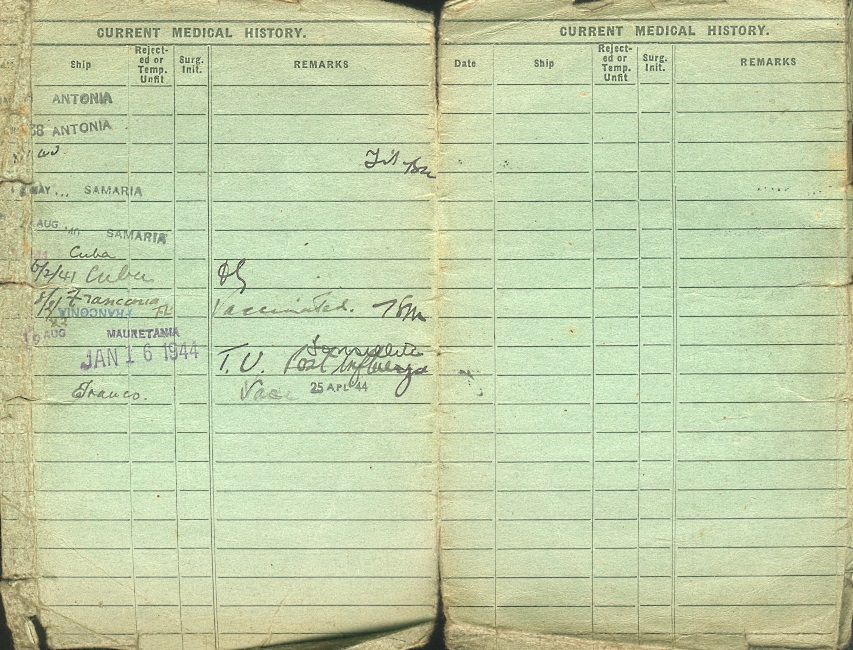 CURRENT MEDICAL HISTORY.
Ship Reject-ed or Temp. Unfit Surg. Init. REMARKS
ANTONIA
38 ANTONIA
Fit
MAY SAMARIA
AUG 40 SAMARIA
Cuba
6/2/41 Cuba
Franconia
Vaccinated.
FRANCONIA
19 AUG MAURETANIA
JAN 16 1944
T.U. Tonsillitis
Post Influenza
Franco. Vacc 25 APL 44
CURRENT MEDICAL HISTORY.
Date Ship Reject-ed or Temp. Unfit Surg. Init. REMARKS